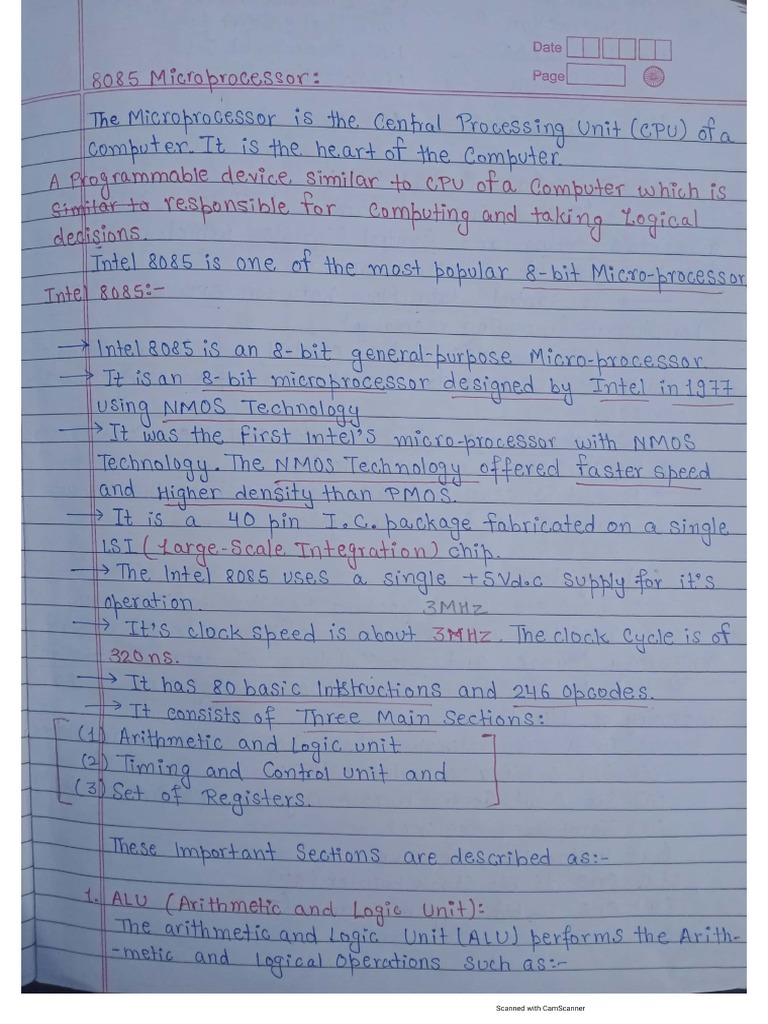 Date
Page
8085 Microprocessor:
The Microprocessor is the Central Processing Unit (CPU) of a
computer. It is the heart of the Computer.
A Programmable device similar to CPU of a Computer which is
similar to responsible for Computing and taking Logical
decisions.
Intel 8085 is one of the most popular 8-bit Micro-processor
Intel 8085:-
→ Intel 8085 is an 8-bit general-purpose Micro-processor.
→ It is an 8-bit microprocessor designed by Intel in 1977
using NMOS Technology
→ It was the first Intel's micro-processor with NMOS
Technology. The NMOS Technology offered faster speed
and Higher density than PMOS.
→ It is a 40 pin I.C. package fabricated on a single
LSI (Large-Scale Integration) chip.
→ The Intel 8085 uses a single +5Vd.c supply for it's
operation.
3MHz
→ It's clock speed is about 3MHz. The clock Cycle is of
320ns.
→ It has 80 basic Intstructions and 246 opcodes.
→ It consists of Three Main Sections:
(1) Arithmetic and Logic unit
(2) Timing and Control unit and
(3) Set of Registers.
These Important Sections are described as:-
1. ALU (Arithmetic and Logic Unit):
The arithmetic and Logic Unit (ALU) performs the Arith-
-metic and Logical Operations such as:-
Scanned with CamScanner